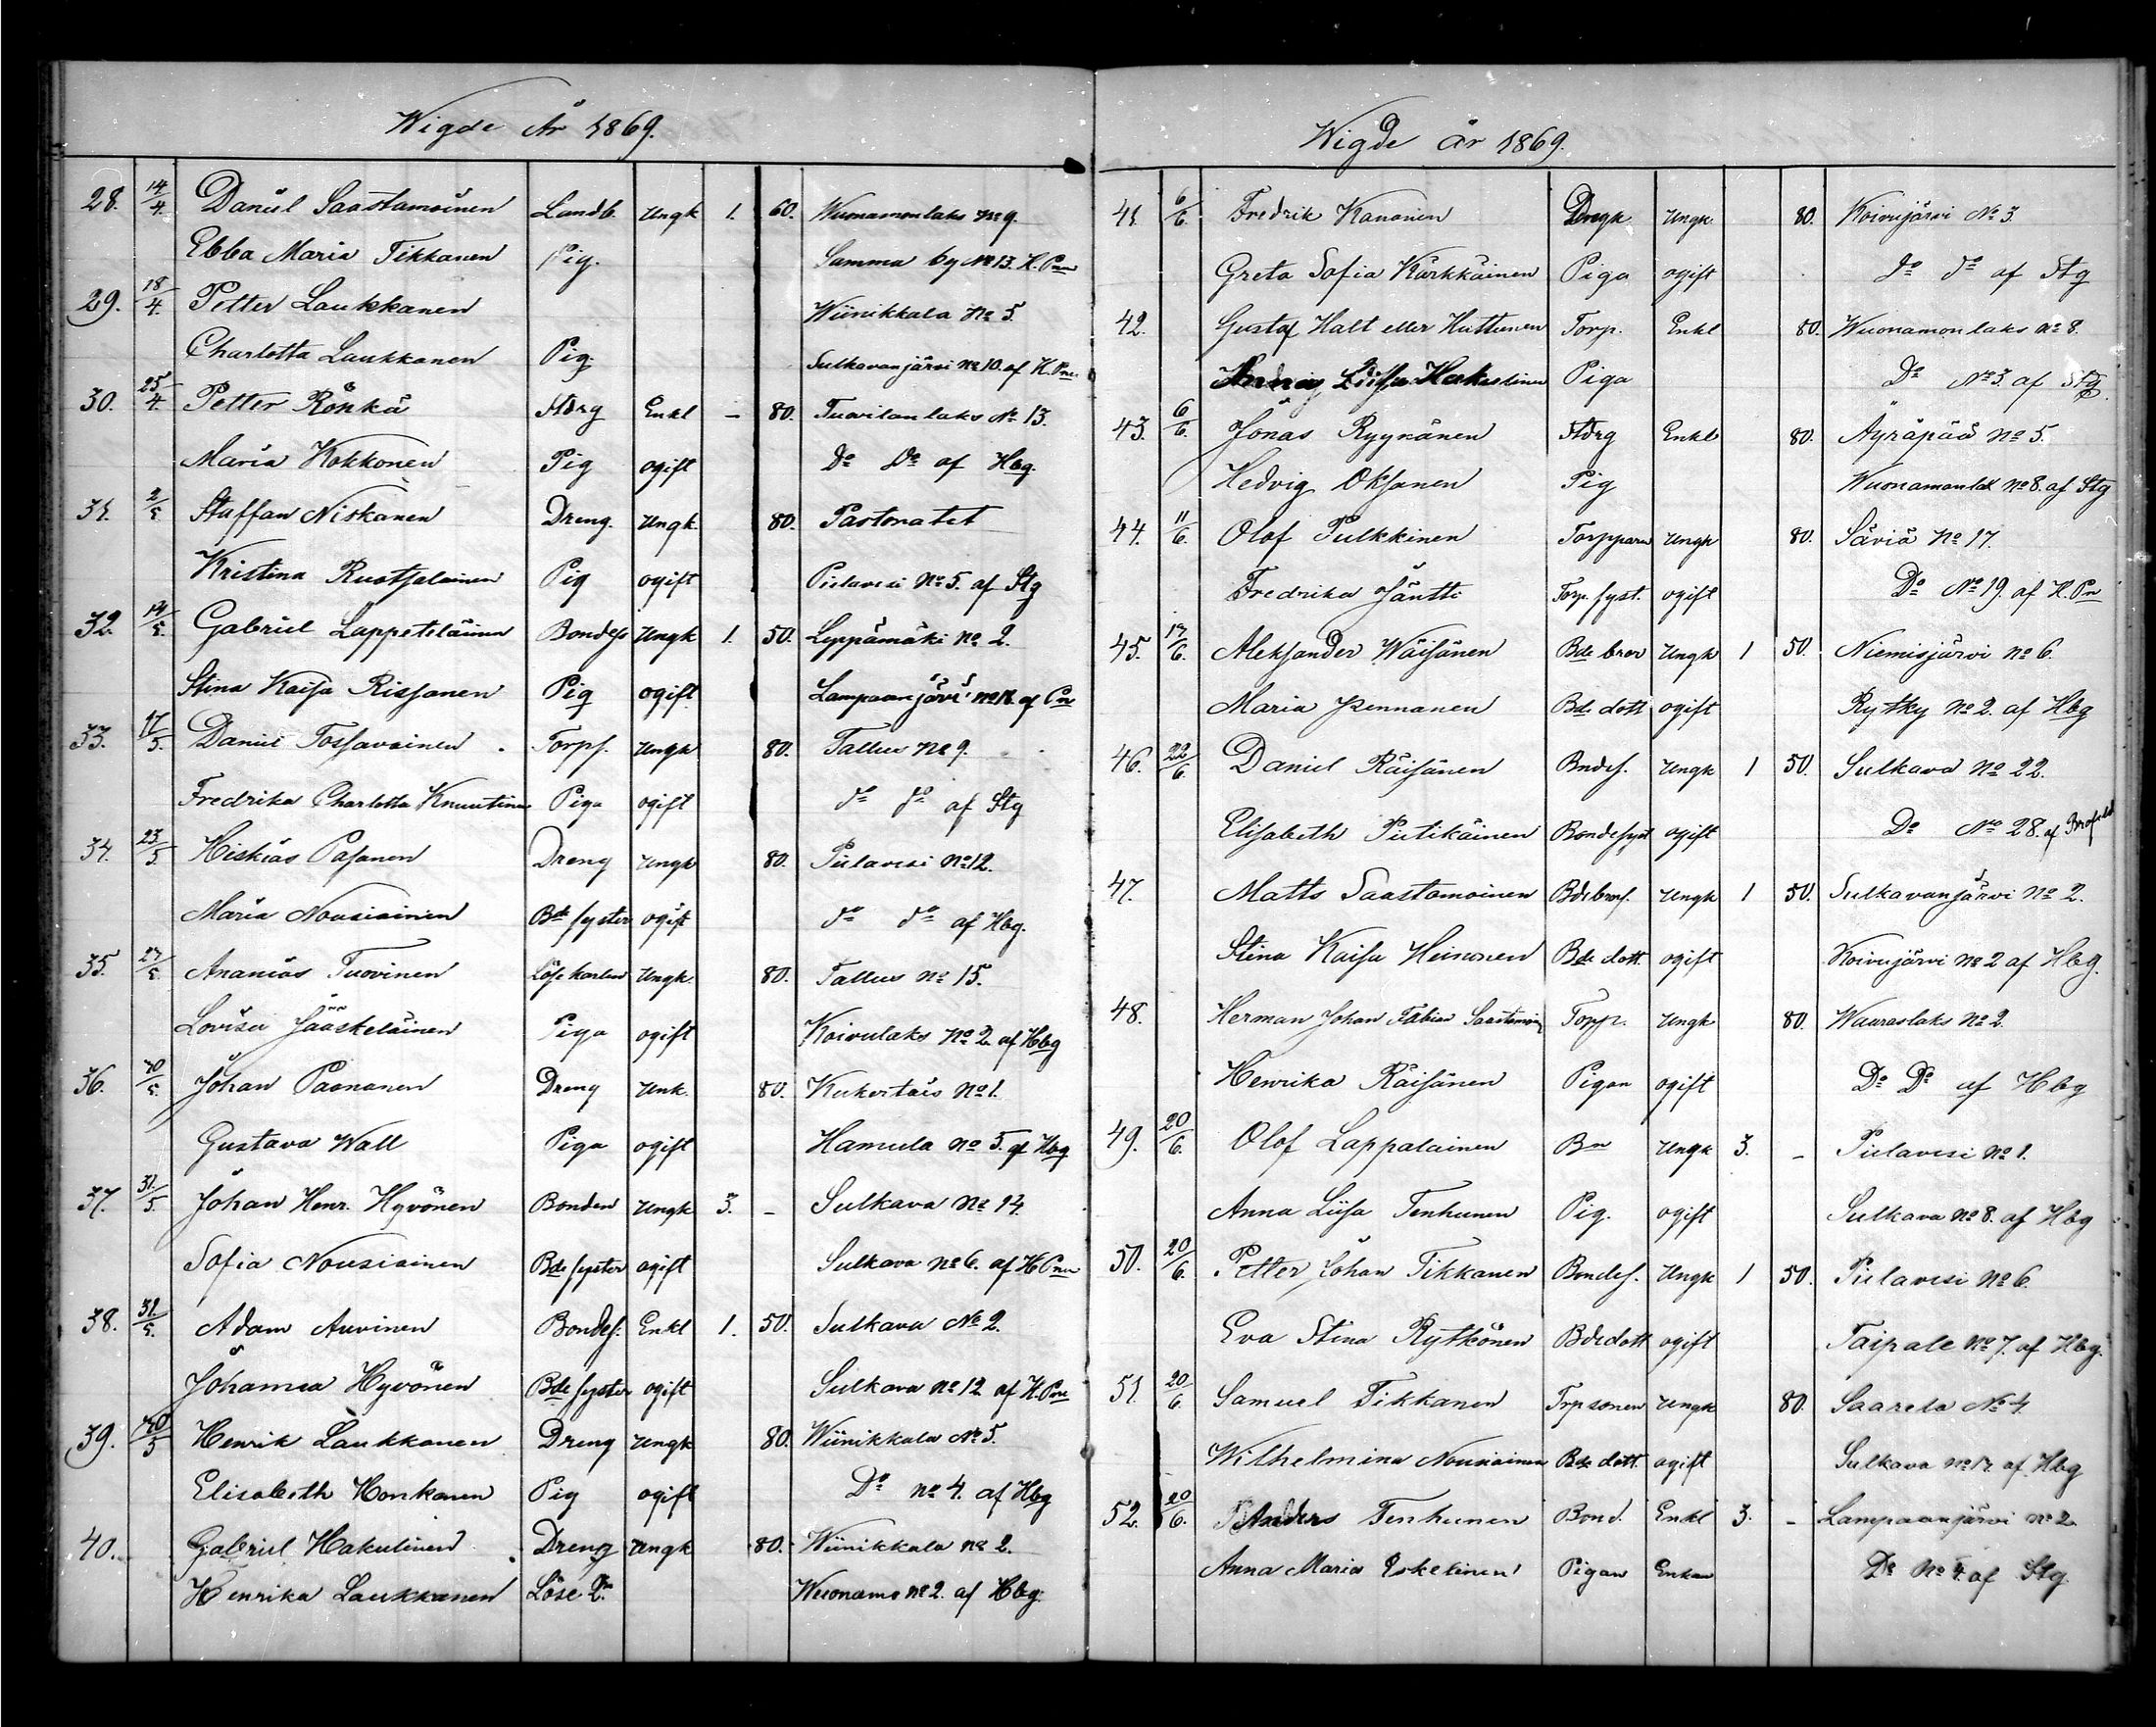 Wigde År 1869.
28. 14/4. Daniel Saastamoinen Landb. Ungk 1. 60. Wuonamonlaks No 9.
Ebba Maria Tikkanen Pig. Samma by No 13. H. Pnn
29. 18/4. Petter Laukkanen Wiinikkala No 5.
Charlotta Laukkanen Pig. Sulkavanjärvi No 10. af H. Pnn.
30. 25/4. Petter Rönkä Enkl – 80. Tuovilanlaks No 13.
Maria Kokkonen Pig ogift Do Do af Hbg.
31. 2/5 Staffan Niskanen Dreng. Ungk. 80. Pastoratet
Kristina Ruotsalainen Pig ogift Pielavesi No 5. af Stg
32. 14/5. Gabriel Lappeteläinen Bondes Ungk 1. 50. Leppämäki No 2.
Stina Kaisa Rissanen Pig ogift Lampaanjärvi af Pn
33. 17/5 Daniel Tossavainen Torps. Ungk 80. Tallus No 9.
Fredrika Charlotta Knuutinen Piga ogift do do af Stg
34. 23/5 Hiskias Pasanen Dreng Ungk 80. Pielavesi No 12.
Maria Nousiainen Bde syster ogift do do af Hbg.
35. 27/5. Ananias Tuovinen Löse karlen Ungk. 80. Tallus No 15.
Lovisa Jääskeläinen Piga ogift Koivulaks No 2. af Hbg
36. 5. Johan Paananen Dreng Unk. 80. No 1.
Gustava Wall Piga ogift Hamula No 5. af Hbg
37. 31/5. Johan Henr. Hyvönen Bonden Ungk 3. – Sulkava No 14
Sofia Nousiainen Bde syster ogift Sulkava No 6. af H Pnn
38. 31/5. Adam Auvinen Bondes. Enkl 1. 50. Sulkava No 2.
Johanna Hyvönen Bde syster ogift Sulkava No 12 af H. Pnn
39. Henrik Laukkanen Dreng Ungk 80. Wiinikkala No 5.
Elisabeth Honkanen Pig ogift Do No 4. af Hbg
40. Gabriel Hakulinen Dreng Ungk 80. Wiinikkala No 2.
Henrika Laukkanen Löse Wuonamo No 2. af Hbg.
Wigde år 1869.
41. 6/6. Fredrik Kananen Drengk Ungk. 80. Koivujärvi No 3.
Greta Sofia Kärkkäinen Piga ogift do do af Stg
42. Gustaf Halt eller Huttunen Torp. Enkl 80. Wuonamonlaks No 8.
Anna Liisa Hakulinen Piga Do No 3. af Stg.
43. 6/6. Jonas Ryynänen Enkl 80. Äyräpää No 5.
Hedvig Oksanen Pig Wuonamonlax No 8. af Stg
44. 11/6. Olof Pulkkinen Torpparen Ungk 80. Säviä No 17.
Fredrika Jäntti Torp. syst. ogift Do No 19. af H. Pn
45. 17/6. Aleksander Wäisänen Bde bror Ungk 1 50. Niemisjärvi No 6.
Maria Pennanen Bde dott ogift Rytky No 2. af Hbg
46. 22/6. Daniel Räisänen Bndes. Ungk 1 50. Sulkava No 22.
Elisabeth Putikäinen Bondesyst ogift Do No 28. af
47. Matts Saastamoinen Bdebrors. Ungk 1 50. Sulkavanjärvi No 2.
Stina Kaisa Heinonen Bde dott. ogift Koivujärvi No 2 af Hbg.
48. Herman Johan Fabian Saastamoin Torpp. Ungk 80. Wauraslaks No 2.
Henrika Räisänen Pigan ogift Do Do af Hbg
49. 20/6. Olof Lappalainen Bn Ungk 3. – Pielavesi No 1.
Anna Liisa Tenhunen Pig. ogift Sulkava No 8. af Hbg
50. 20/6. Petter Johan Tikkanen Bondes. Ungk 1 50. Pielavesi No 6.
Eva Stina Rytkönen Bdedott ogift Taipale No 7. af Hbg.
51. 20/6. Samuel Tikkanen Trpsonen Ungk 80. Saarela No 4.
Wilhelmina Nousiainen Bde dott. ogift Sulkava No 17. af Hbg
52. 20/6. Anders Tenhunen Bond. Enkl 3. – Lampaanjärvi No 2
Anna Maria Eskelinen Pigan Enkan Do No 4. af Stg.